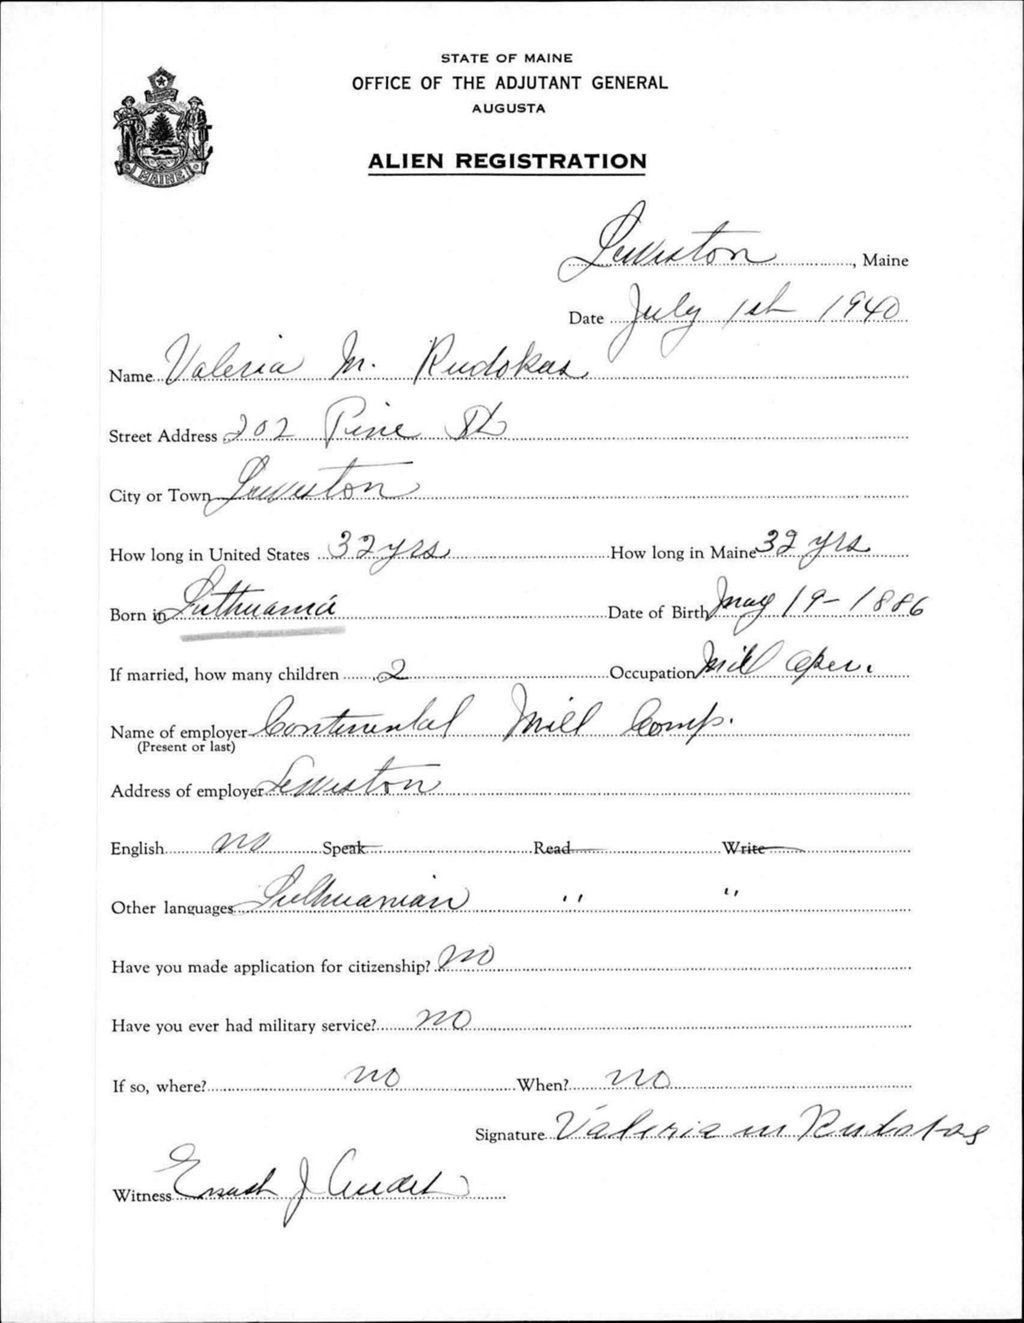 STATE OF MAINE
OFFICE OF THE ADJUTANT GENERAL
AUGUSTA
ALIEN REGISTRATION
MAINE
Lewiston, Maine
Date July 1st 1940
Name Valeria M. Rudokas
Street Address 202 Pine St
City or Town Lewiston
How long in United States 32 yrs How long in Maine 32 yrs
Born in Lithuania Date of Birth May 19-1886
If married, how many children 2 Occupation Mill Oper.
Name of employer Continental Mill Comp.
(Present or last)
Address of employer Lewiston
English no Speak Read Write
Other languages Lithuanian " "
Have you made application for citizenship? No
Have you ever had military service? no
If so, where? no When? no
Signature Valeria m Rudokas
Witness J Audet